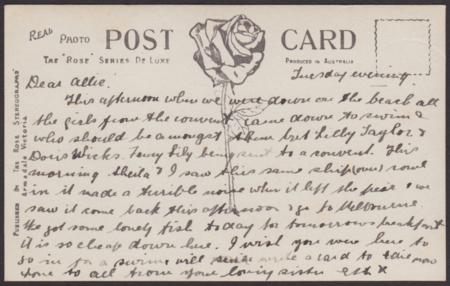 Real Photo POST CARD
The "Rose" Series De Luxe
Produced in Australia
Published by The Rose Stereographs
Armadale Victoria
Tuesday evening
Dear Allie.
This afternoon when we were down on the beach all
the girls from the convent came down to swim &
who should be amongst them but Lily Taylor &
Doris Wicks. Fancy Lily being sent to a convent. This
morning Sheila & I saw this same ship
in it made a terrible noise when it left the pier & we
saw it come back this afternoon & go to Melbourne.
We got some lovely fish today for tomorrows breakfast
it is so cheap down here. I wish you were here to
go in for a swim will write a card to Edie now
love to all from your loving sister